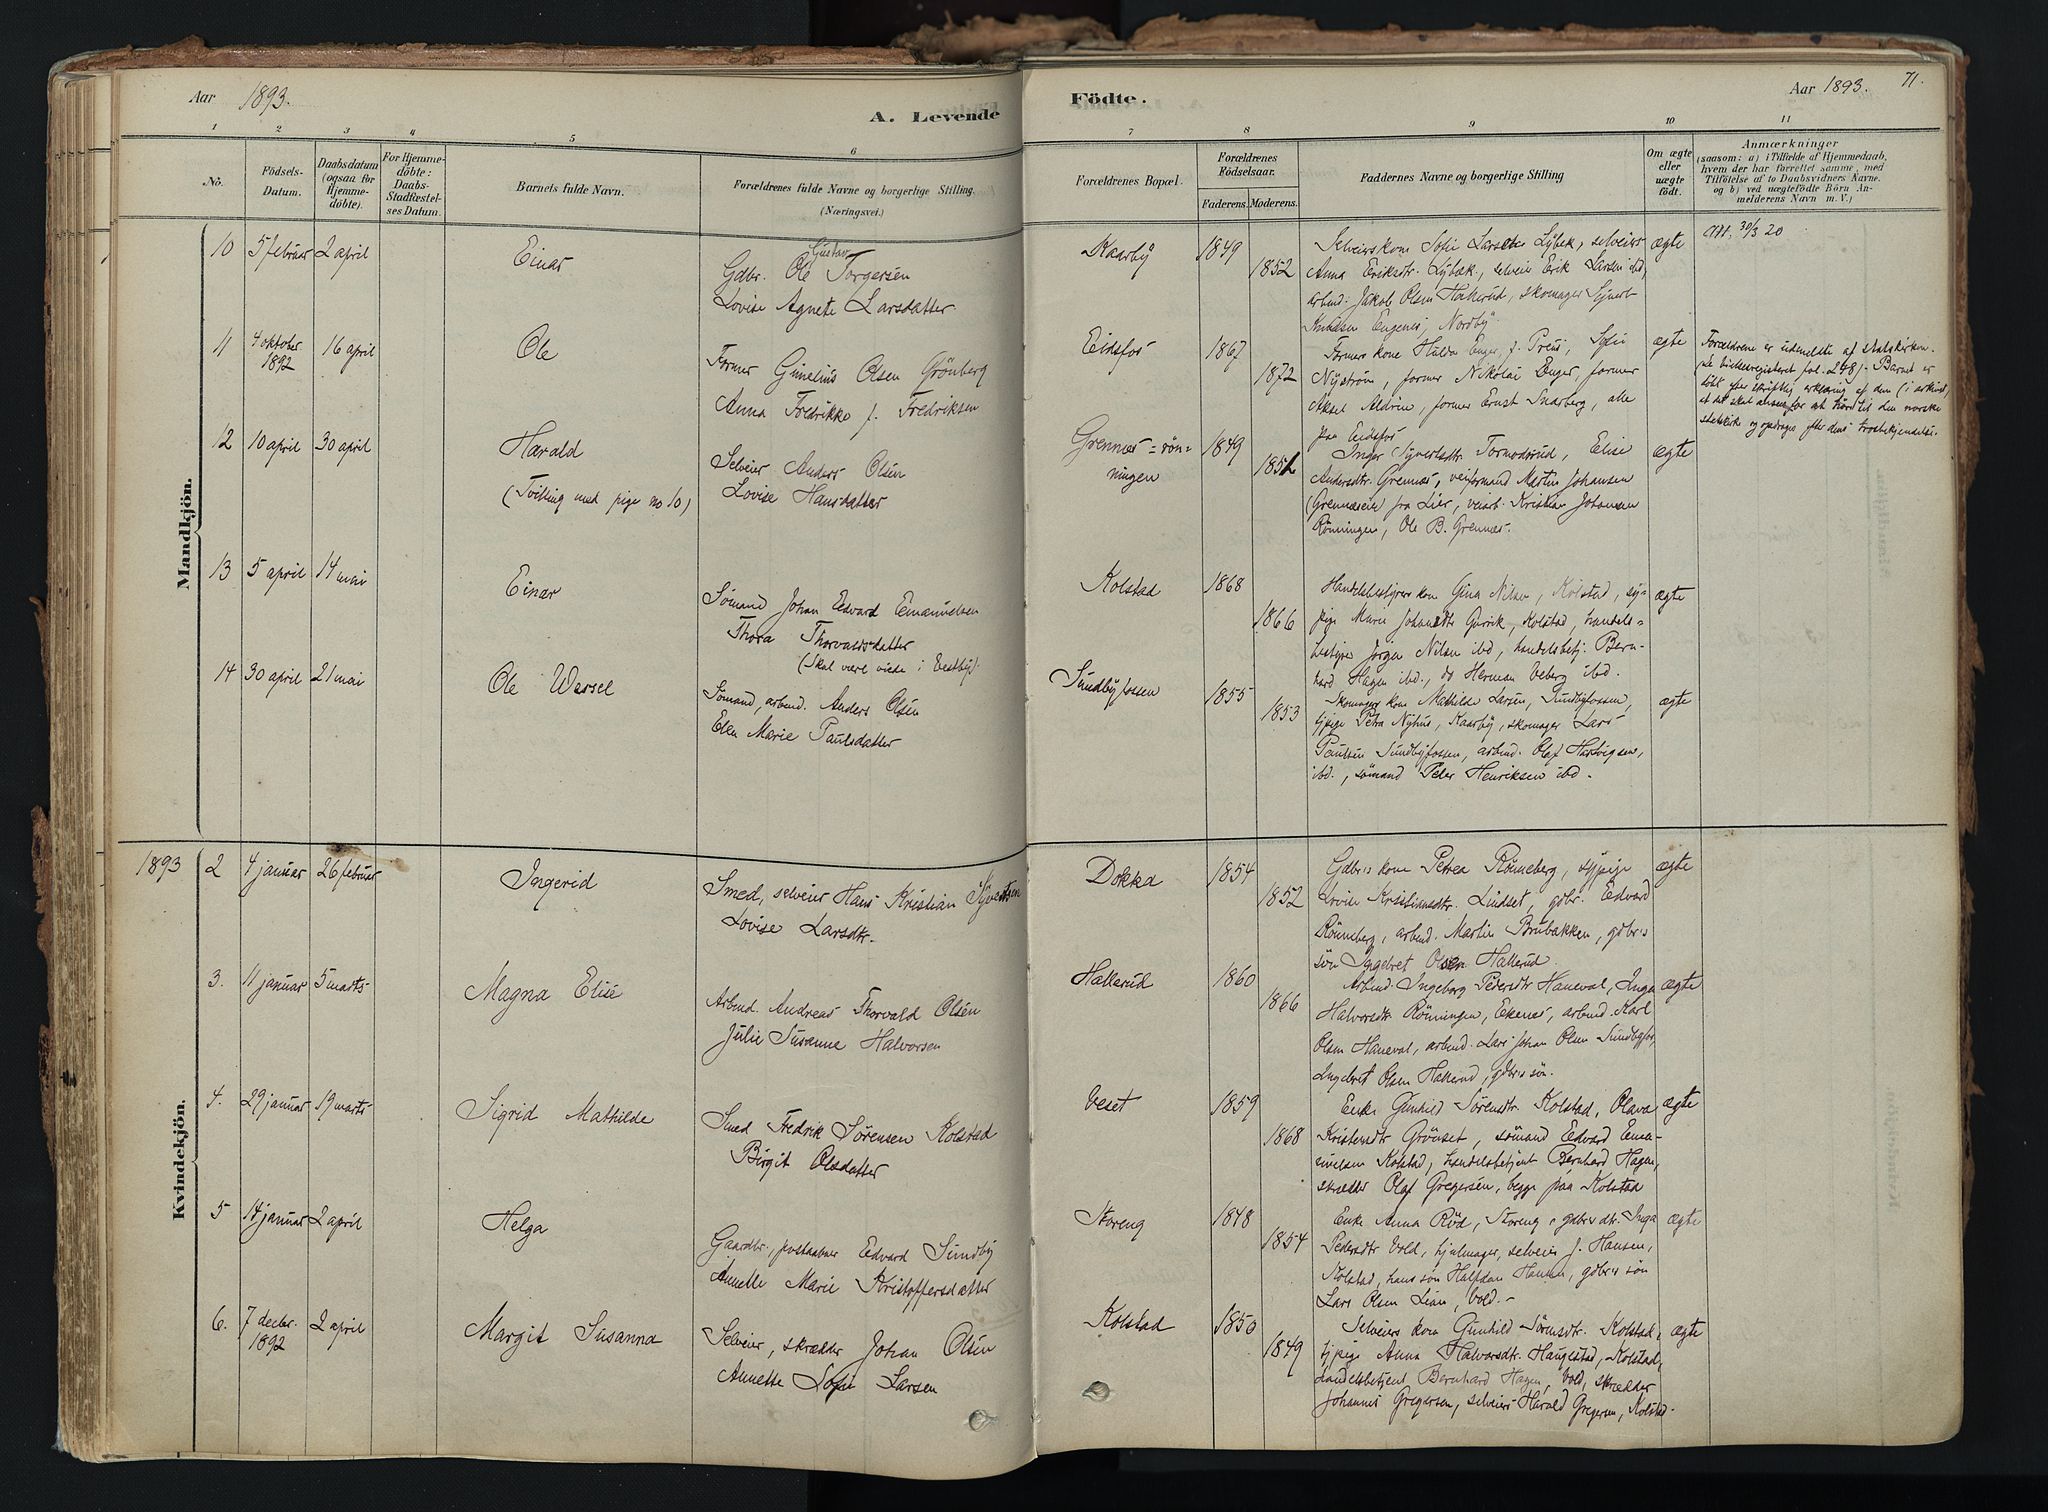 Aar 1893.
A. Levende
Födte.
Aar 1893.
71.
1 2 3 4 5 6 7 8 9 10 11
No.
Födsels-
Datum.
Daabsdatum
(ogsaa for
Hjemme-
döbte).
For Hjemme-
döbte:
Daabs-
Stadfæstel-
ses Datum.
Barnets fulde Navn.
Forældrenes fulde Navne og borgerlige Stilling.
(Næringsvei.)
Forældrenes Bopæl.
Forældrenes
Födselsaar.
Faderens. Moderens.
Faddernes Navne og borgerlige Stilling
Om ægte
eller
uægte
födt.
Anmærkninger
(saasom: a) i Tilfælde af Hjemmedaab,
hvem der har forrettet samme, med
Tilföielse af to Daabsvidners Navne.
og b) ved uægtefödte Börn An-
melderens Navn m. V.)
Mandkjön.
10 5 februar 2 april
Einar
Gustav
Gdbr. Ole Torgersen
Lovise Agnete Larsdatter
Kaarby
1849
1852
Selveiers kone Sofie Larsdtr Lybæk, selveiers
Anna Eriksdtr. Lybæk, selveier Erik Larsen ibd,
arbeid: Jakob Olsen Hallerud, skomager Syvert
Knudsen Eugenes, Nordby
ægte
Att. 30/3 20
11 4 oktober 1892 16 april
Ole
Former Gunelius Olsen Grönberg
Anna Fredrikke f. Fredriksen
Eidsfos
1867
1872
Formers kone Hulda Enger, f. Preus, Sofie
Nyström, former Nikolai Enger, former
Aksel Aldrin, former Ernst Snarberg, alle
paa Eidsfos
ægte
Forældrene er udmeldte af statskirken.
Barnet er
döbt efter skriftlig erklæring af dem (i arkivet)
at det skal ansees for at höre til den norske
statskirke og opdrages efter dens trosbekjendelse.
12 10 april 30 april
Harald
(Tvilling med pige no 10)
Selveier Anders Olsen
Lovise Hansdatter
Grennes=rön=
ningen
1849
1851
Inger Syvertsdtr. Tormodsrud, Elise
Andersdtr. Grennes, veiformand Martin Johansen
(Grennæseie) fra Lier, veiarb. Kristian Johansen
Rönningen, Ole B. Grennes.
ægte
13 5 april 14 mai
Einar
Sömand Johan Edvard Emanuelsen
Thora Thorvaldsdatter
(Skal være viede i Vestby).
Kolstad
1868
1866
Handelsbestyrer kone Gina Nilsen, Kolstad, sy-
pige Marie Johansdtr Gurik, Kolstad, handels=
bestyrer Jörgen Nilsen ibd, handelsbetj. Bern-
hard Hagen ibd., do Herman Veberg ibd.
ægte
14 30 april 21 mai
Ole Wessel
Sömand, arbeid. Anders Olsen
Elen Marie Paulsdatter
Sundbyfossen
1855
1853
Skomagers kone Mathilde Larsen, Sundbyfossen,
tjpige Petra Nyhus, Kaarby, skomager Lars
Paulsen Sundbyfossen, arbeid. Olaf Hartvigsen,
ibd., sömand Peter Henriksen ibd.
ægte
1893
Kvindekjön.
2 4 januar 26 februar
Ingerid
Smed, selveier Hans Kristian Syvertsen
Lovise Larsdtr.
Dokka
1854
1852
Gdbr.s kone Petrea Rönneberg, sypige
Lovise Kristiansdtr. Lindset, gdbr. Edvard
Rönneberg, arbeid. Martin Brubakken, gdbr.s
sön Ingebret Olsen Hallerud.
ægte
3. 11 januar 5 marts
Magna Elise
Arbeid. Andreas Thorvald Olsen
Julie Susanne Halvorsen
Hallerud
1860
1866
Arbeid. Ingeborg Pedersdtr Haneval, Inga
Halvorsdtr. Rönningen, Ekenes, arbeid. Karl
Olsen Haneval, arbeid. Lars Johan Olsen Sundbyfos,
Ingebret Olsen Hallerud, gdbr.s sön.
ægte
4. 29 januar 19 marts
Sigrid Mathilde
Smed Fredrik Sörensen Kolstad
Birgit Olsdatter
Veset
1859
1868
Enke Gunhild Sörensdtr. Kolstad, Olava
Kristensdtr Grönset, sömand Edvard Ema-
nuelsen Kolstad, handelsbetjent Bernhard Hagen,
skrædder Olaf Gregersen, begge paa Kolstad
ægte
5 14 januar 2 april
Helga
Gaardbr., postaabner Edvard Sundby
Annette Marie Kristoffersdatter
Storeng
1848
1854
Enke Anna Röd, Storeng, gdbr.s dtr. Inga
Pedersdtr Vold, hjulmager, selveier J. Hansen,
Kolstad, hans sön Halfdan Hansen, gdbr.s sön
Lars Olsen Lian, Vold.-
ægte
6. 7 decbr. 1892 2 april
Margit Susanna
Selveier, skrædder Johan Olsen
Annette Sofie Larsen
Kolstad
1850
1849
Selveiers kone Gunhild Sörensdtr. Kolstad,
tjpige Anna Halvorsdtr. Haugestad, Kolstad,
handelsbetjent Bernhard Hagen, Vold, skrædder
Johannes Gregersen, selveier Harald Gregersen, Kolstad.
ægte